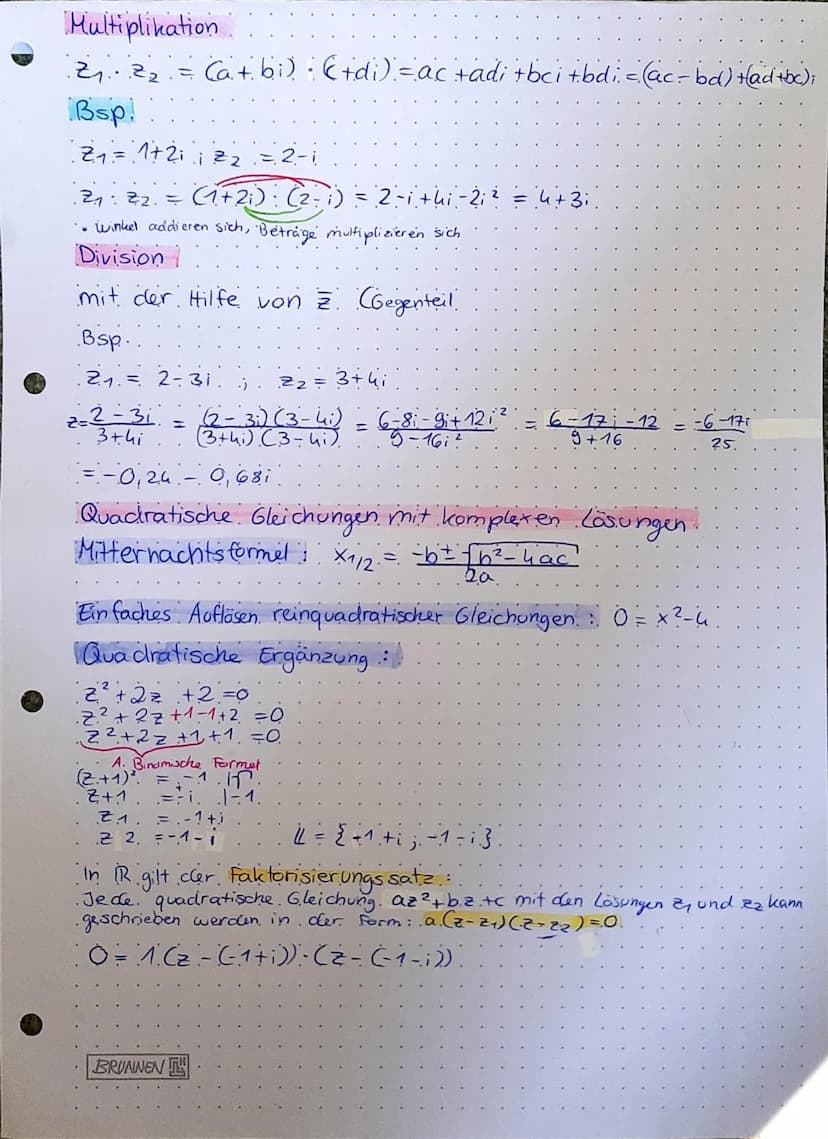 Multiplikation
z₁ · z₂ = (a + bi) · (c+di) = ac + adi + bci + bdi = (ac - bd) + (ad+bc)i
Bsp.
z₁ = 1+2i ; z₂ = 2-i
z₁ · z₂ = (1+2i) · (2-i) = 2-i+4i-2i² = 4+3i
• Winkel addieren sich, Beträge multiplizieren sich
Division
mit der Hilfe von z̅ (Gegenteil
Bsp.
z₁ = 2-3i ; z₂ = 3+4i
z= (2-3i)/(3+4i) = ((2-3i)(3-4i))/((3+4i)(3-4i)) = (6-8i-9i+12i²)/(9-16i²) = (6-17i-12)/(9+16) = (-6-17i)/25
= -0,24 - 0,68i
Quadratische Gleichungen mit komplexen Lösungen
Mitternachtsformel: x₁/₂ = (-b ± √(b²-4ac))/(2a)
Einfaches Auflösen reinquadratischer Gleichungen: 0 = x²-4
Quadratische Ergänzung:
z² + 2z + 2 = 0
z² + 2z +1-1+2 = 0
z² + 2z +1+1 = 0
1. Binomische Formel
(z+1)² = -1 |√
z+1 = ±i |-1
z1 = -1+i
z2 = -1-i 𝕃 = {-1+i ; -1-i}
In ℝ gilt der Faktorisierungssatz:
Jede quadratische Gleichung az²+bz+c mit den Lösungen z₁ und z₂ kann
geschrieben werden in der Form: a(z-z₁)(z-z₂)=0
0 = 1(z - (-1+i)) · (z - (-1-i))
BRUNNEN